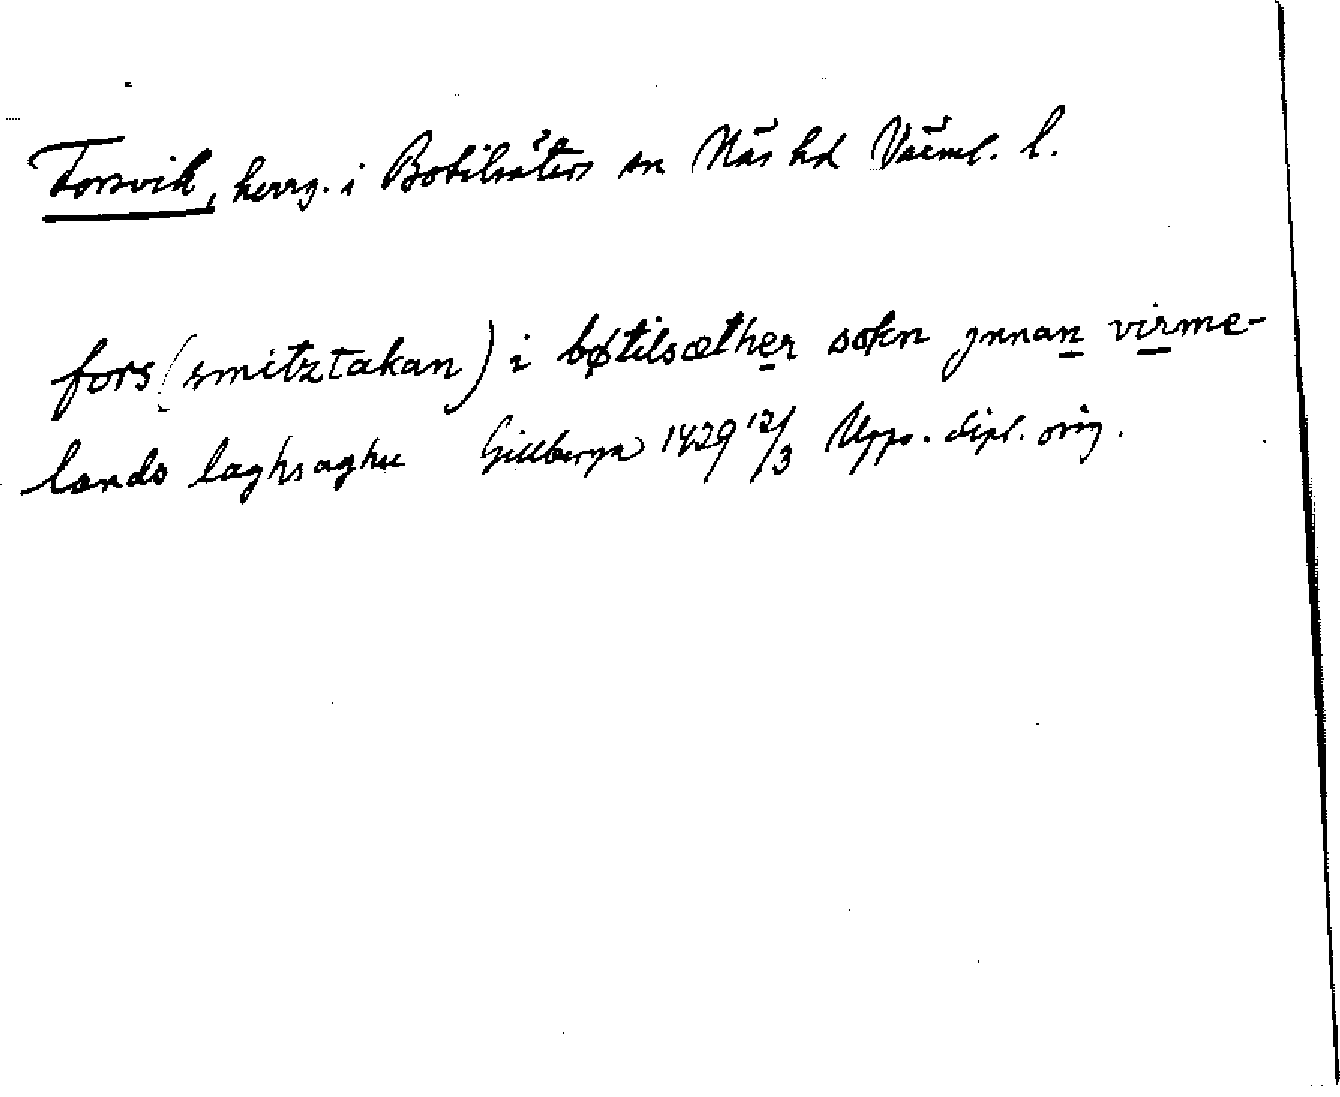 Torsvik, herrg. i Botilsäters sn Näs hd Värml. l.
fors (smitztakan) i bøtilsæther sokn jnnan virme-
lands laghsaghu Gillberga 1429 12/3 Upps. dipl. orig.